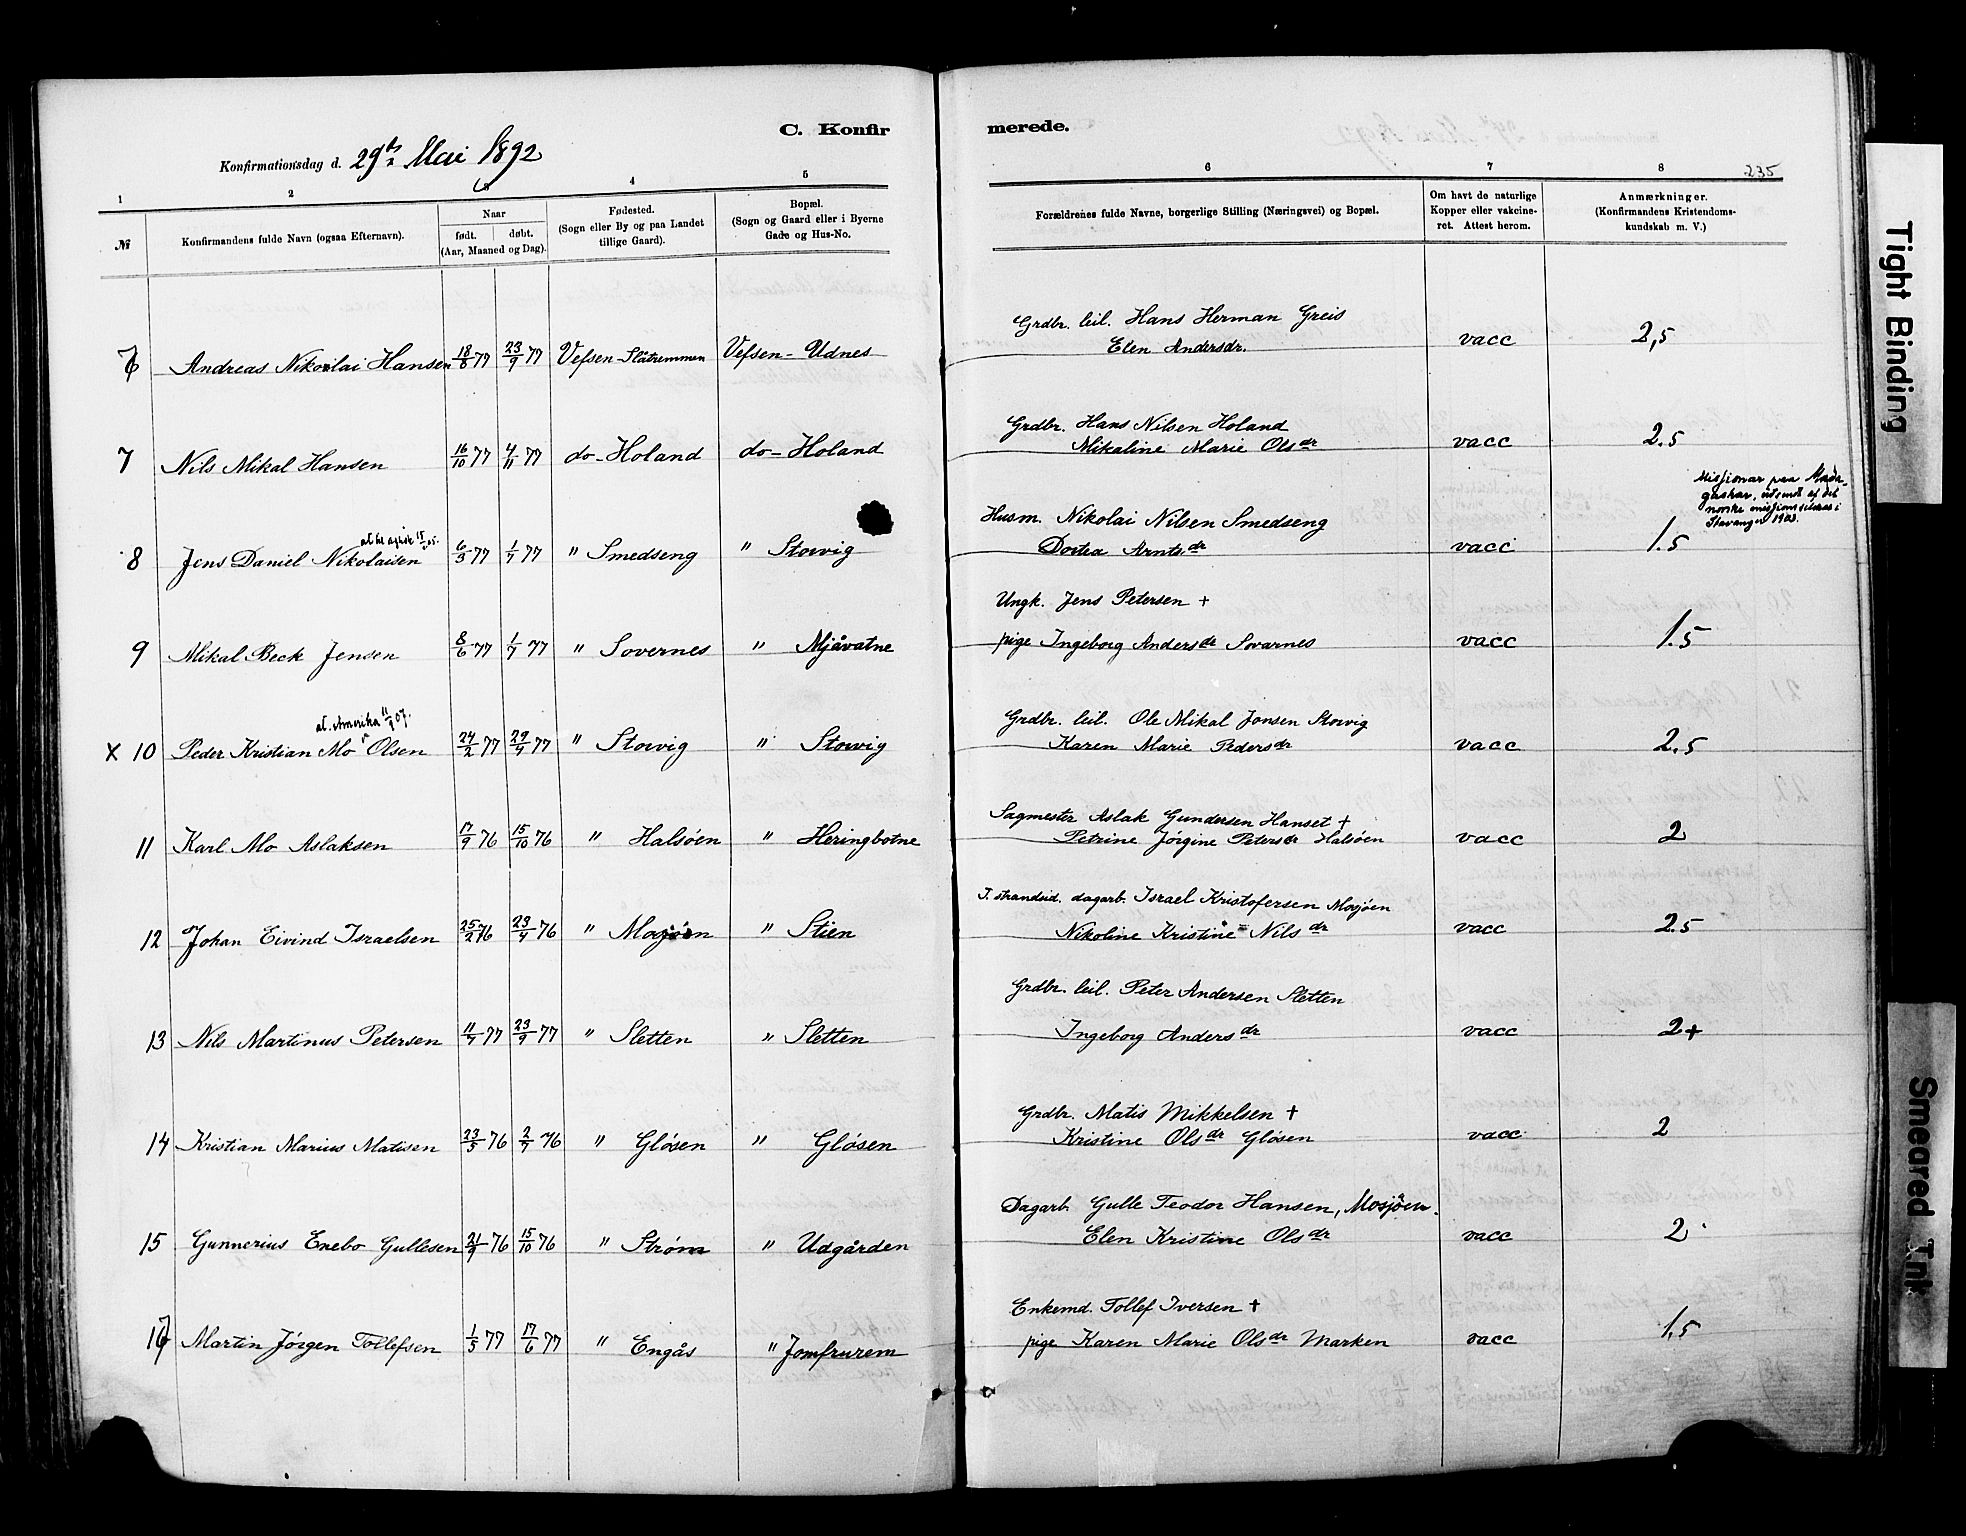 C. Konfir
merede.
Konfirmationsdag d. 29de Mai 1892
235
1 2 3 4 5 6 7 8
№
Konfirmandens fulde Navn (ogsaa Efternavn).
Naar
født. døbt.
(Aar, Maaned og Dag).
Fødested.
(Sogn eller By og paa Landet
tillige Gaard).
Bopæl.
(Sogn og Gaard eller i Byerne
Gade og Hus-No.
Forældrenes fulde Navne, borgerlige Stilling (Næringsvei) og Bopæl.
Om havt de naturlige
Kopper eller vakcine-
ret. Attest herom.
Anmærkninger.
(Konfirmandens Kristendoms-
kundskab m. V.)
Grdbr. leil. Hans Herman Greis
6 Andreas Nikolai Hansen 18/8 77 23/9 77 Vefsen-Slåtremmen Vefsen-Udnes Elen Andersdr. vacc 2,5
Grdbr. Hans Nilsen Holand
7 Nils Mikal Hansen 16/10 77 4/11 77 do-Holand do-Holand Mikaline Marie Olsdr vacc 2.5
Missionar paa Mada-
gaskar, udsendt af det
norske missionsselskab i
Stavanger 1903.
Husm. Nikolai Nilsen Smedseng
8 Jens Daniel Nikolaisen 6/3 77 1/7 77 " Smedseng " Storvig Dortea Arntsdr vacc 1.5
Ungk. Jens Petersen +
9 Mikal Beck Jensen 8/6 77 1/7 77 " Sovernes " Mjåvatne pige Ingeborg Andersdr Sovarnes vacc 1.5
at. Amerika 11/9 07.
Grdbr. leil. Ole Mikal Jonsen Storvig
x 10 Peder Kristian Mo Olsen 24/2 77 29/4 77 " Storvig " Storvig Karen Marie Pedersdr vacc 2.5
Sagmester Aslak Gundersen Hanset +
11 Karl Mo Aslaksen 17/9 76 15/10 76 " Halsøen " Heringbotne Petrine Jørgine Petersdr Halsøen vacc 2
I. strandsid. dagarb. Israel Kristofersen Mosjøen
12 Johan Eivind Israelsen 25/2 76 23/4 76 " Mosjøen " Stien Nikoline Kristine Nilsdr vacc 2.5
Grdbr. leil. Peter Andersen Sletten
13 Nils Martinus Petersen 11/7 77 23/9 77 " Sletten " Sletten Ingeborg Andersdr vacc 2+
Grdbr. Matis Mikkelsen +
14 Kristian Marius Matisen 23/5 76 2/7 76 " Gløsen " Gløsen Kristine Olsdr Gløsen vacc 2
Dagarb. Gulle Teodor Hansen, Mosjøen.
15 Gunnerius Enebo Gullesen 21/9 76 15/10 76 " Strøm " Udgården Elen Kristine Olsdr vacc 2
Enkemd. Tollef Iversen +
16 Martin Jørgen Tollefsen 1/5 77 17/6 77 " Engås " Jomfrurem pige Karen Marie Olsdr Marken vacc 1,5
Tight Binding
Smeared Ink